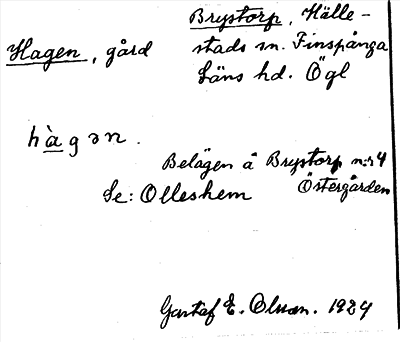 Hagen, gård
Brystorp, Hälle-
stads sn. Finspånga
Läns hd. Ögl
hàgən.
Belägen å Brystorp n:r 4
Östergården
Se: Olleshem
Gustaf E. Olsson. 1929